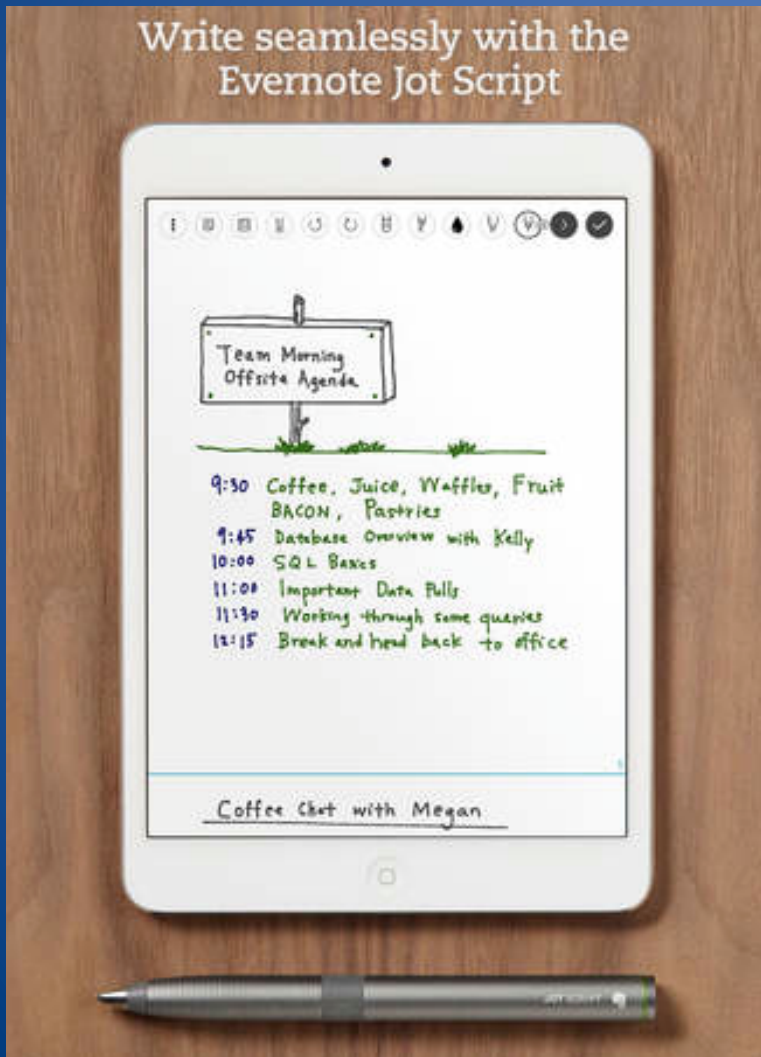 Write seamlessly with the
Evernote Jot Script
Team Morning
Offsite Agenda
9:30 Coffee, Juice, Waffles, Fruit
BACON, Pastries
9:45 Database Overview with Kelly
10:00 SQL Basics
11:00 Important Data Pulls
11:30 Working through some queries
12:15 Break and head back to office
Coffee Chat with Megan
JOT SCRIPT